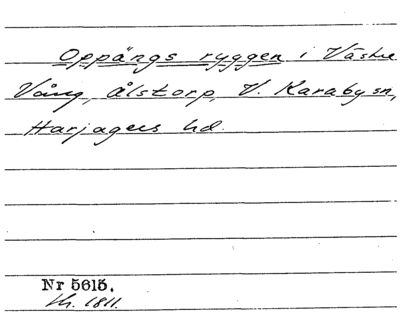 Oppängs ryggen i Västre
Vång, Ålstorp, V. Karaby sn,
Harjagers hd.
Nr 5615.
1811.